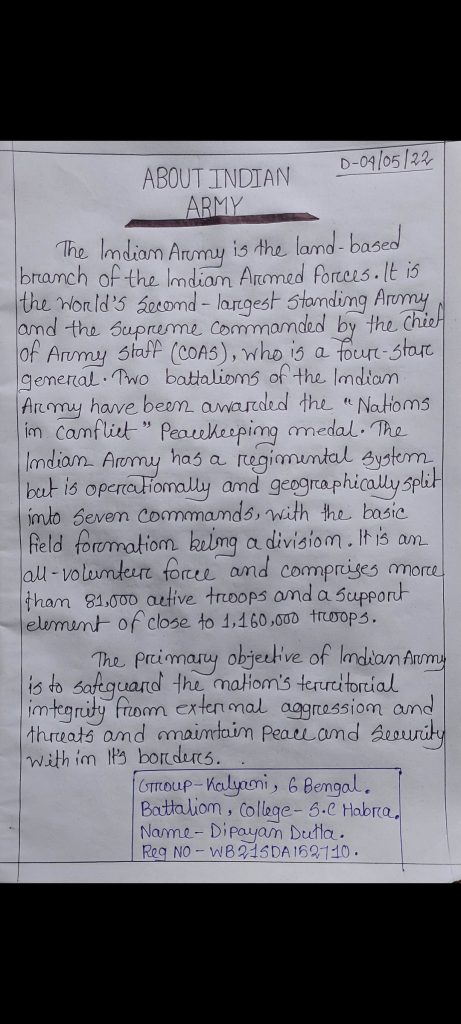 D-04/05/22
ABOUT INDIAN
ARMY
The Indian Army is the land-based
branch of the Indian Armed Forces. It is
the World's Second-largest Standing Army
and the Supreme Commanded by the Chief
Of Army Staff (COAS), who is a four-star
general. Two battalions of the Indian
Army have been awarded the "Nations
in Canflict" Peacekeeping medal. The
Indian Army has a regimental System
but is operationally and geographically split
into Seven Commands, with the basic
field formation being a division. It is an
all-volunteer force and comprises more
than 81,000 active troops and a support
element of close to 1,160,000 troops.
The primary objective of Indian Army
is to safeguard the nation's territorial
integrity from external aggression and
threats and maintain Peace and Security
with in It's borders.
Group-Kalyani, 6 Bengal.
Battalion, College- S.C Habra.
Name- Dipayan Dutta.
Reg NO - WB21SDA152710.